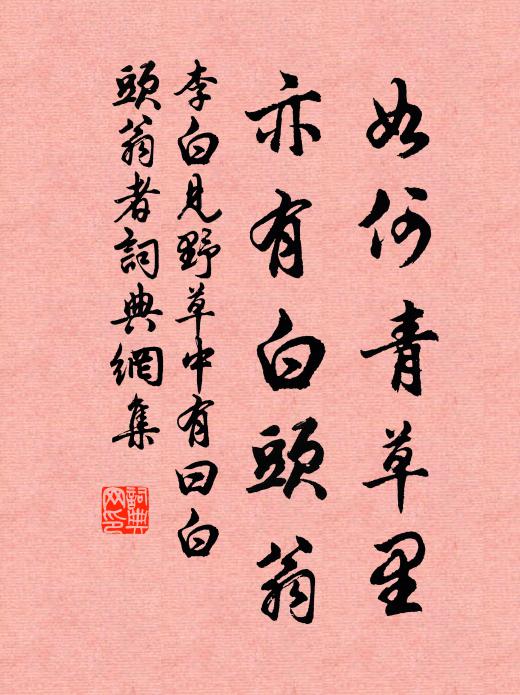 如何青草里
亦有白頭翁
李白見野草中有曰白
頭翁者詞典網集
詞典网印